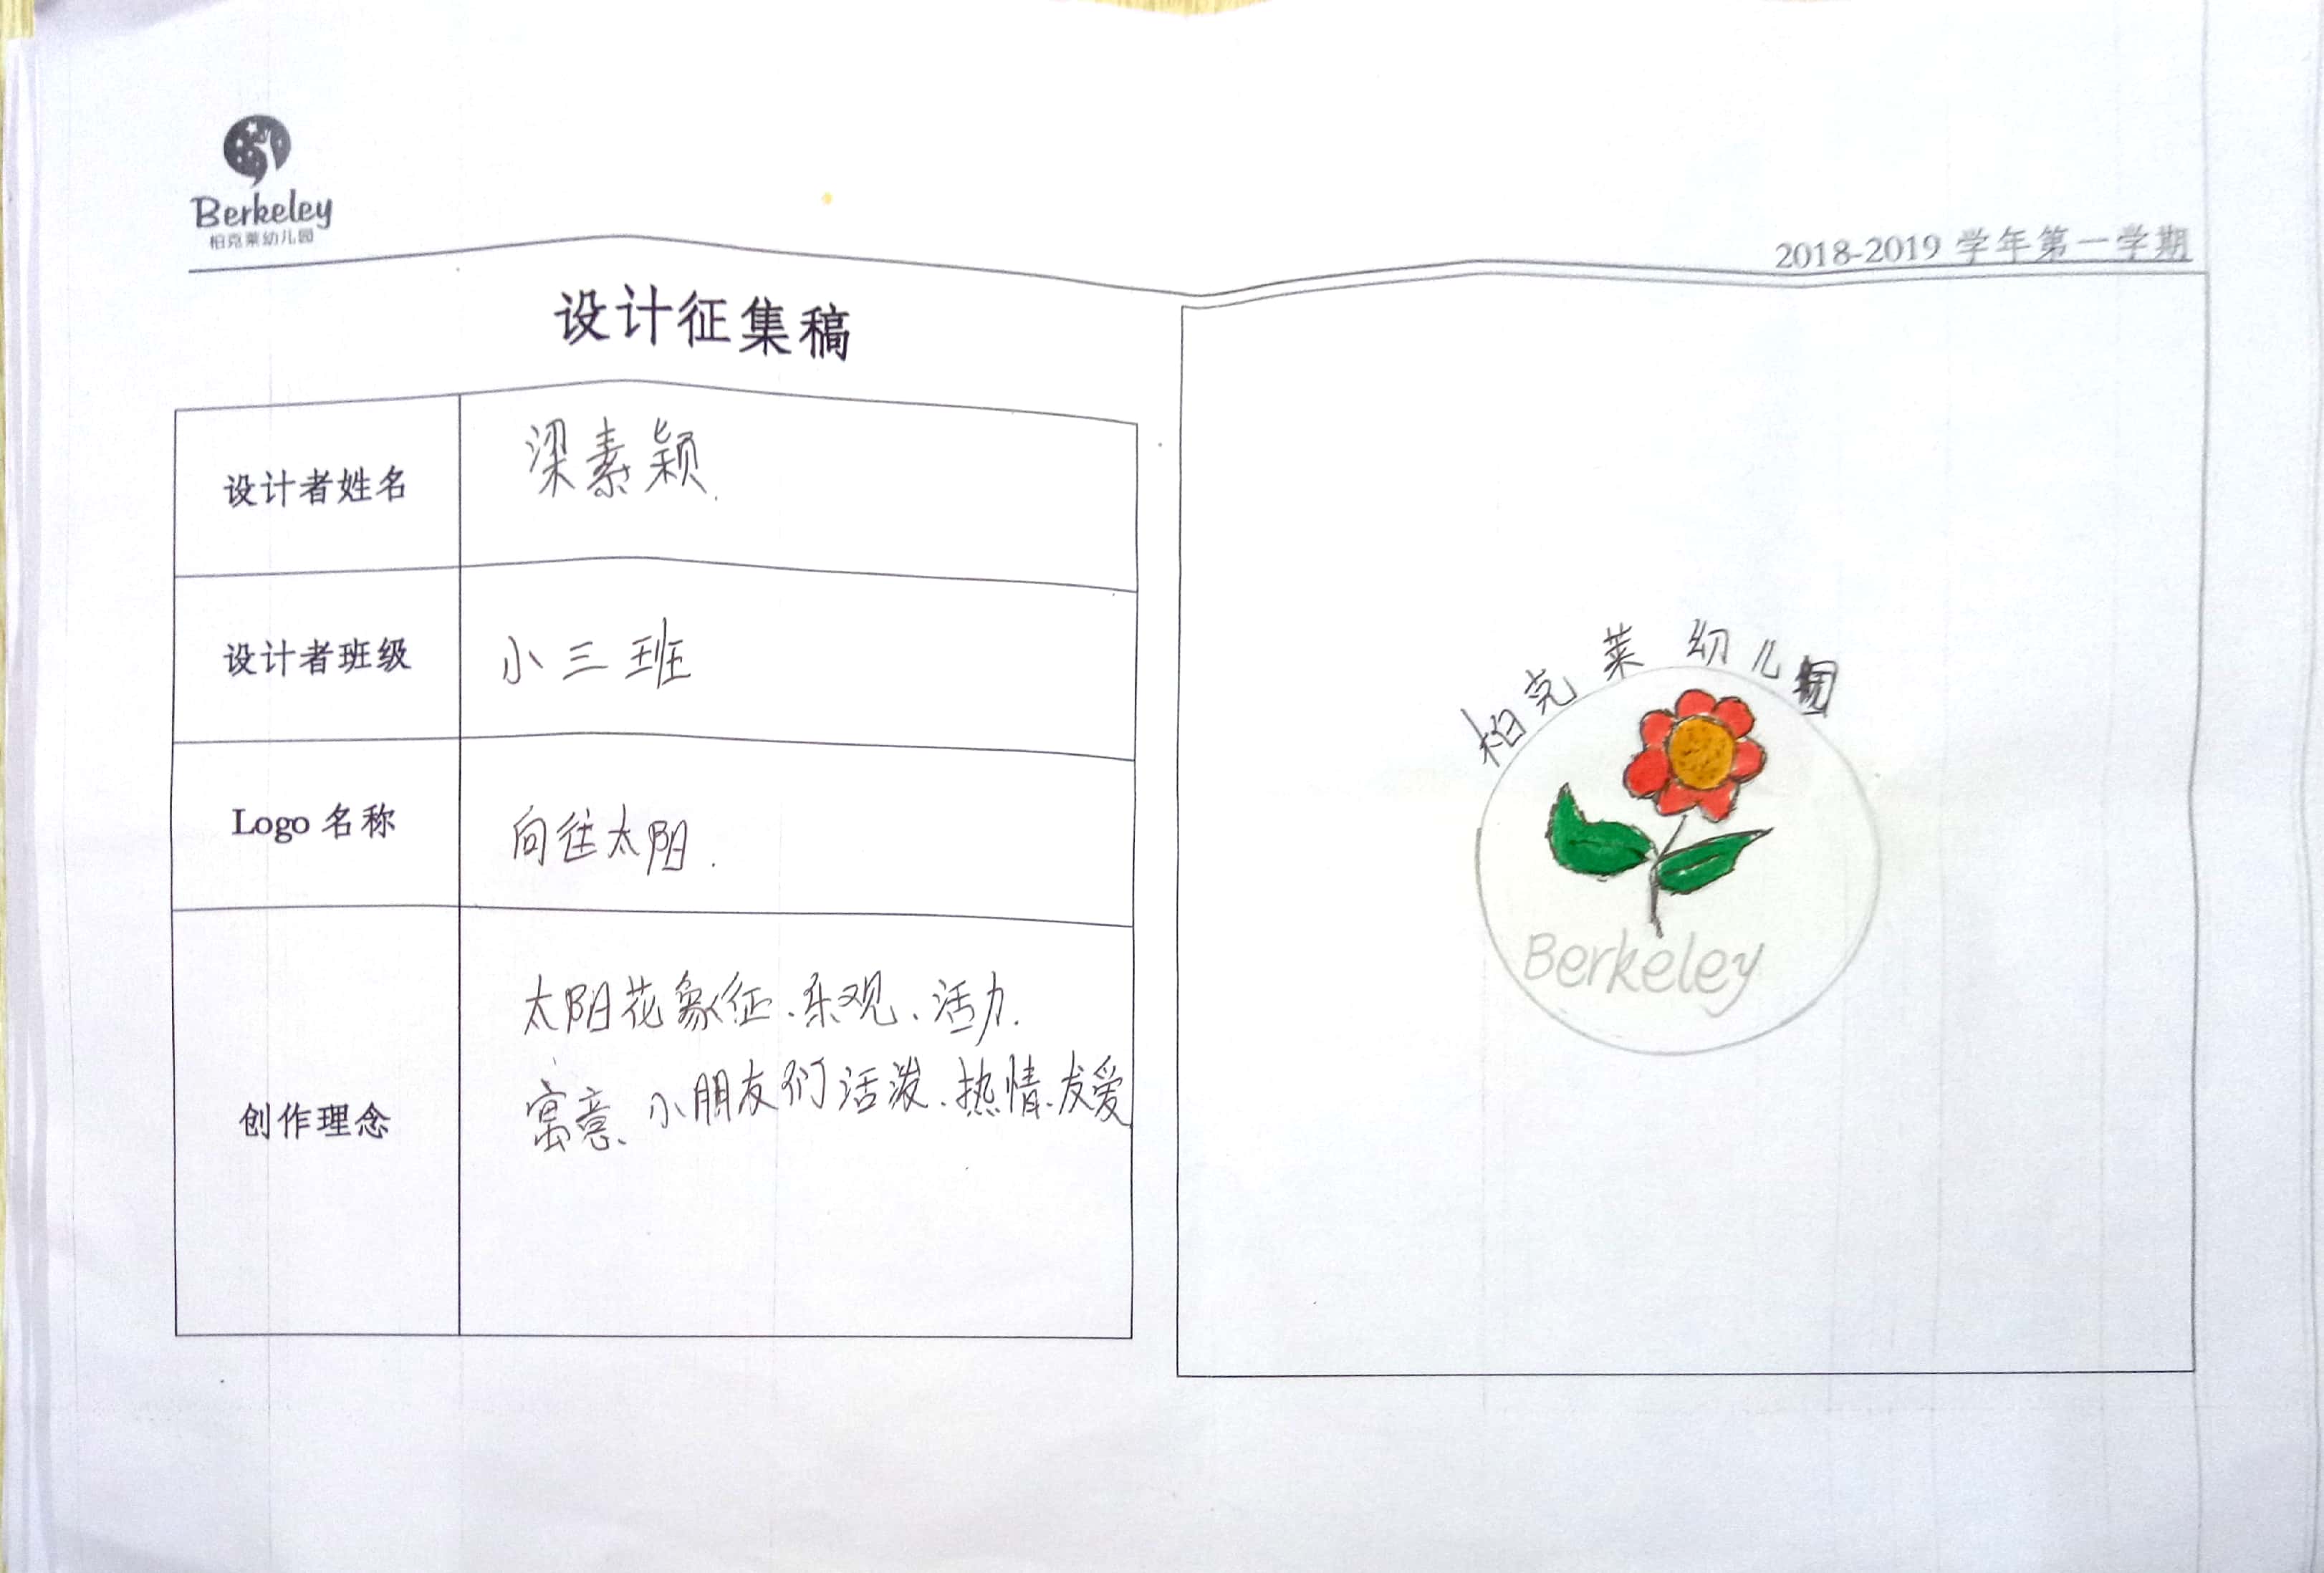 Berkeley
柏克莱幼儿园
2018-2019 学年第一学期
设计征集稿
设计者姓名
梁素颖.
设计者班级
小三班
Logo 名称
向往太阳.
创作理念
太阳花象征、乐观、活力.
寓意、小朋友们活泼、热情、友爱
柏克莱幼儿园
Berkeley